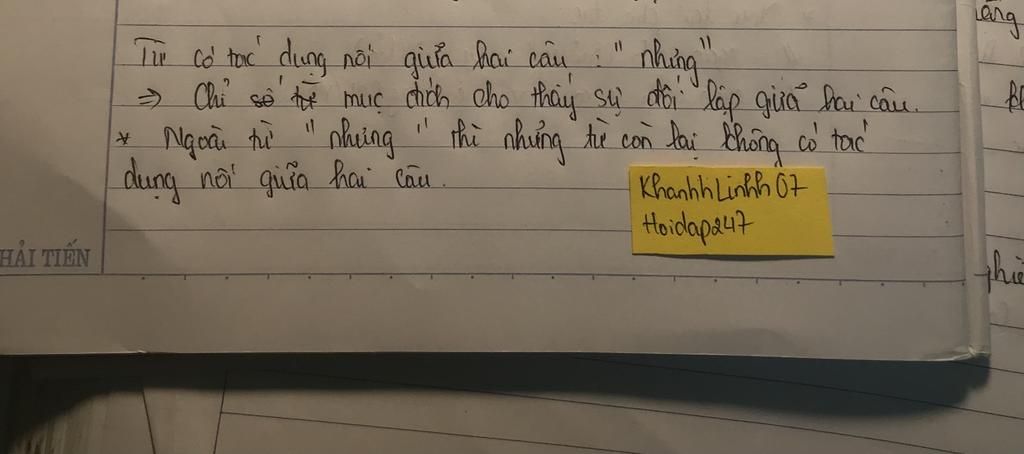 Từ có tác dụng nối giữa hai câu : "nhưng"
⇒ Chỉ số từ mục đích cho thấy sự đối lập giữa hai câu.
* Ngoài từ "nhưng" thì những từ còn lại không có tác
dụng nối giữa hai câu.
KhanhhLinhh07
Hoidap247
HẢI TIẾN